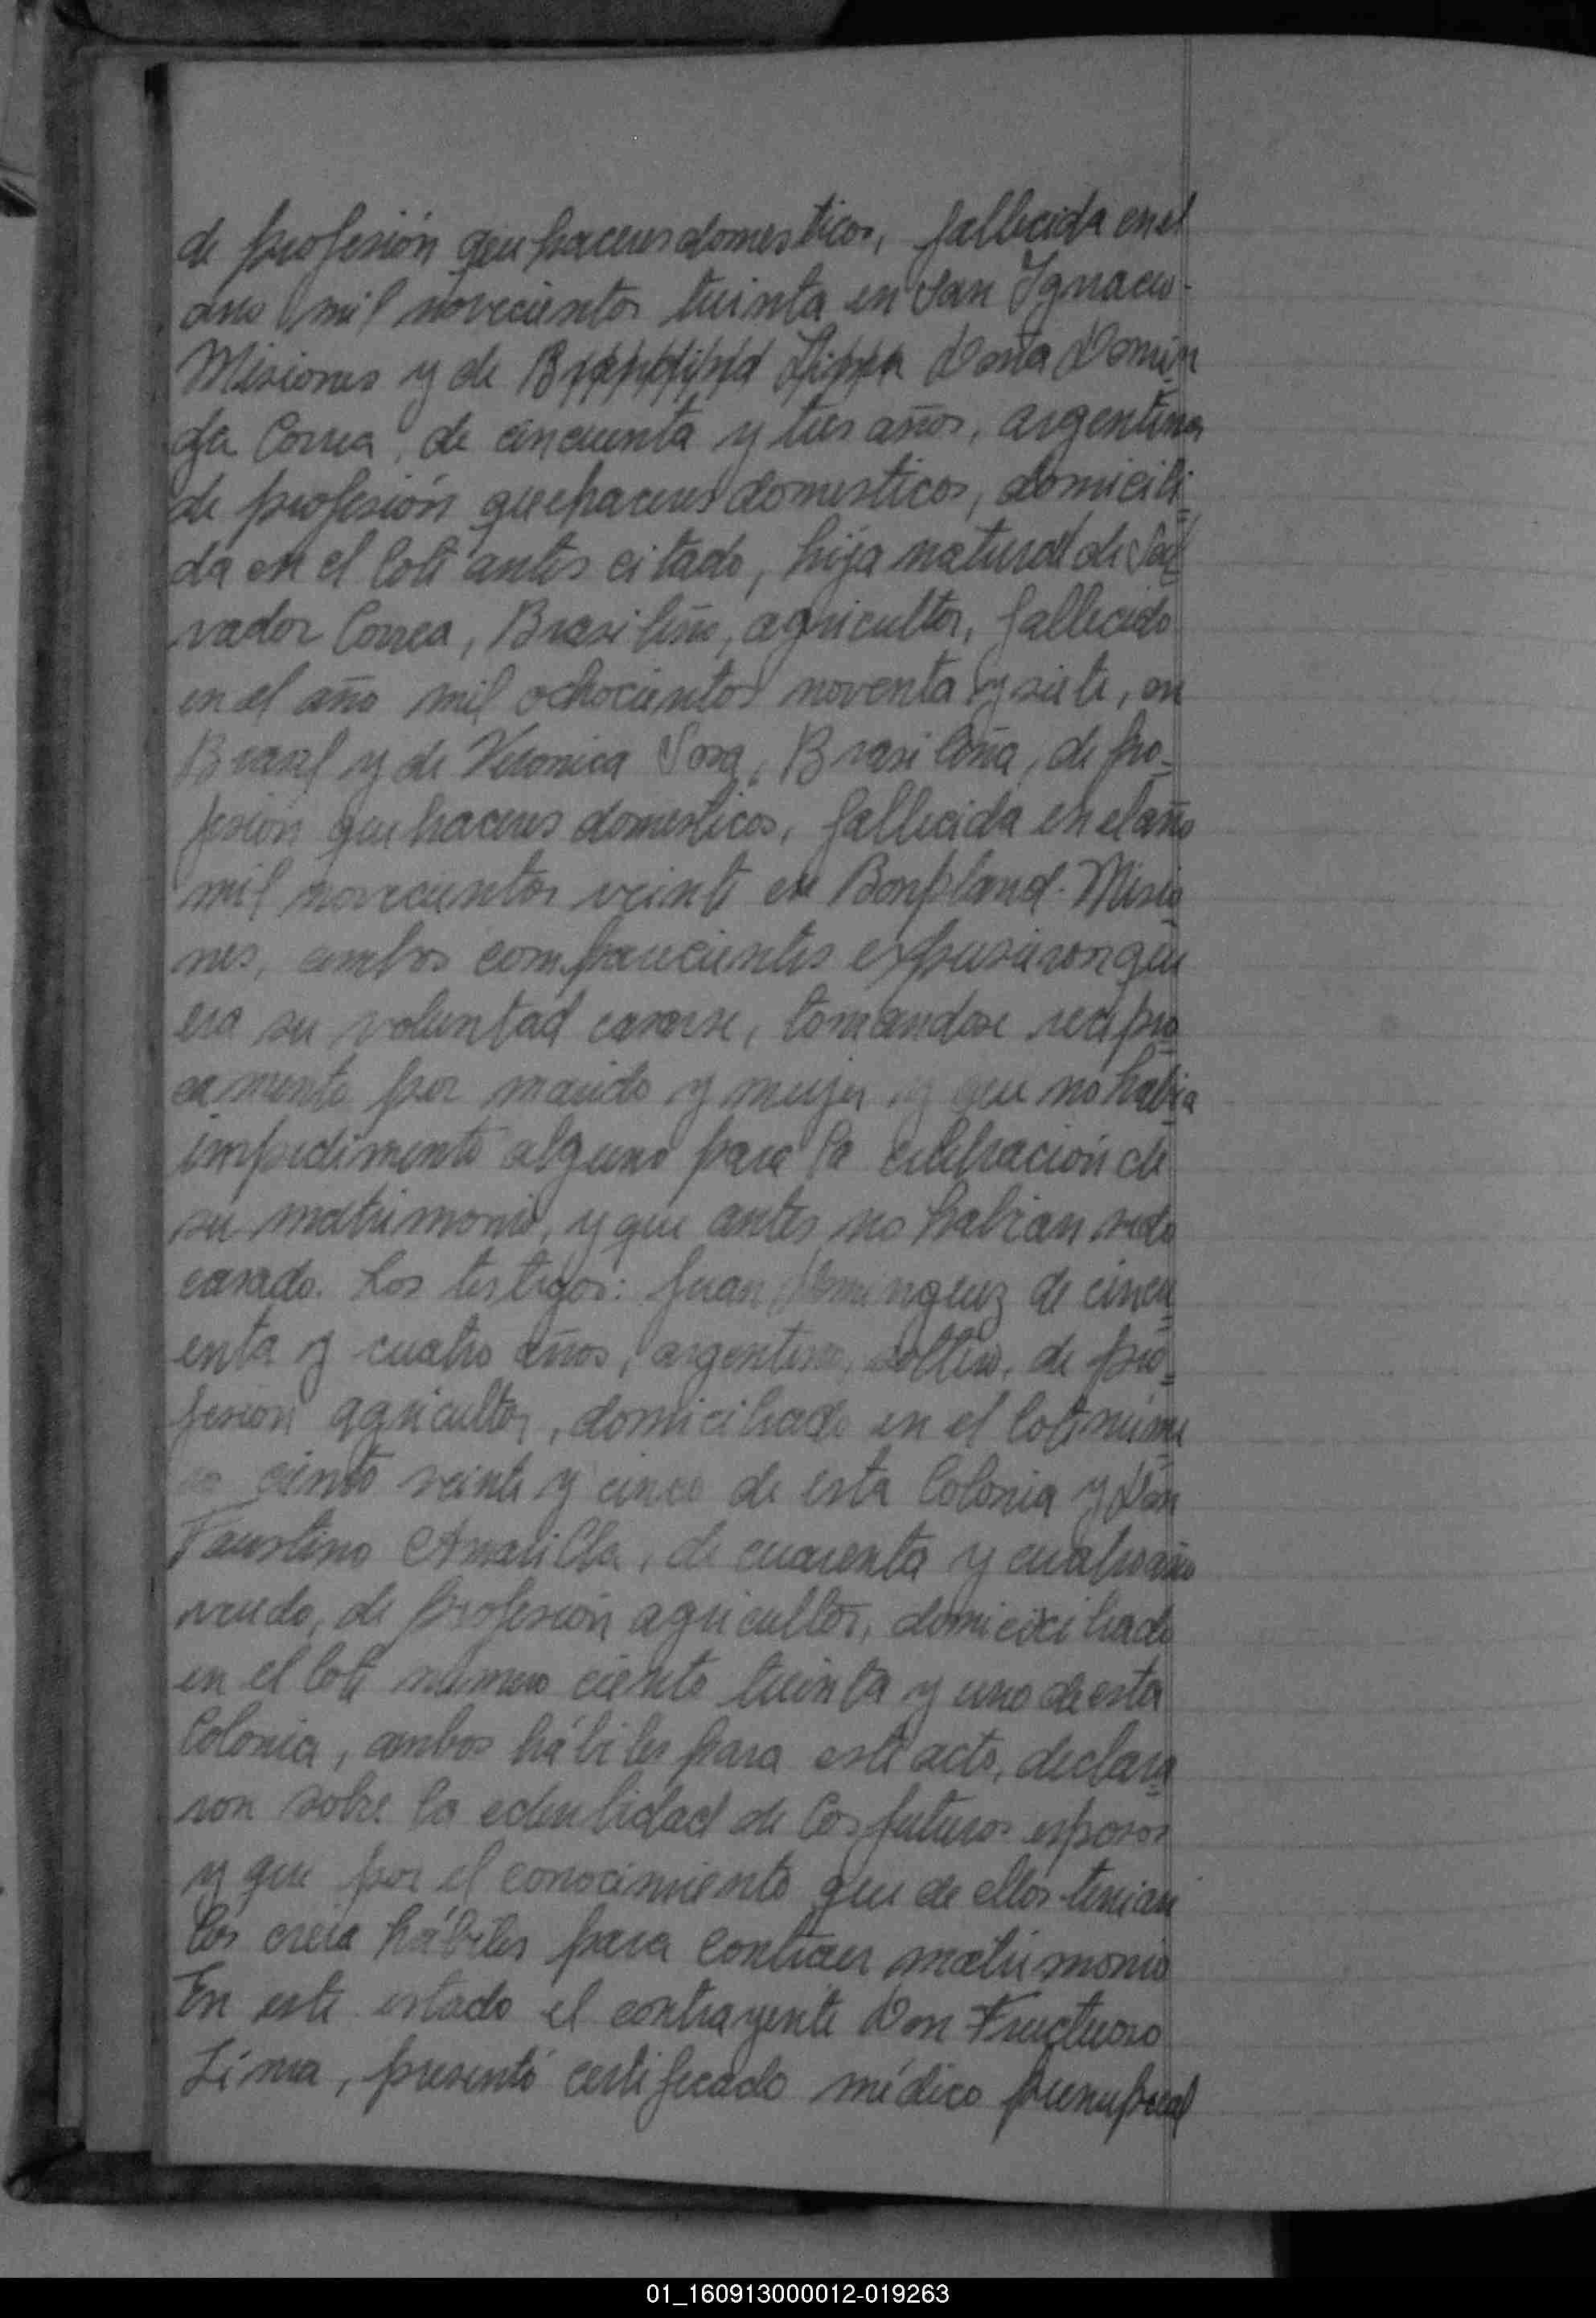 de profesión quehaceres domesticos, fallecida en el
ano mil novecientos treinta en San Ignacio-
Misiones y de Doña Domin
ga Correa, de cincuenta y tres años, argentina
de profesión quehaceres domesticos, domicili
da en el lote antes citado, hija natural de Sal
vador Correa, Brasileño, agricultor, fallecido
en el año mil ochocientos noventa y siete, en
Brasil y de Veronica Brasileña, de pro-
fesión quehaceres domesticos, fallecida en el año
mil novecientos veinte en Bonpland-Misio
nes, ambos comparecientes expusieron que
era su voluntad casarse, tomandose recipro
camente por marido y mujer y que no habia
impedimento alguno para la celebración de
su matrimonio, y que antes no habian sido
casado. Los testigos: Juan Dominguez de cincu
enta y cuatro años, argentino, soltero, de pro-
fesión agricultor, domiciliado en el lote núme
ro ciento veinte y cinco de esta Colonia y Don
Faustino Amarilla, de cuarenta y cuatro año
viudo, de profesión agricultor, domicixciliado
en el lote número ciento treinta y uno de esta
Colonia, ambos hábiles para este acto, declara
ron sobre la edentidad de los futuros esposos
y que por el conocimiento que de ellos tenian
los creia hábiles para contraer matrimonio
En este estado el contrayente Don Fructuoso
Líma, presentó certificado médico prenupcial
01_160913000012-019263